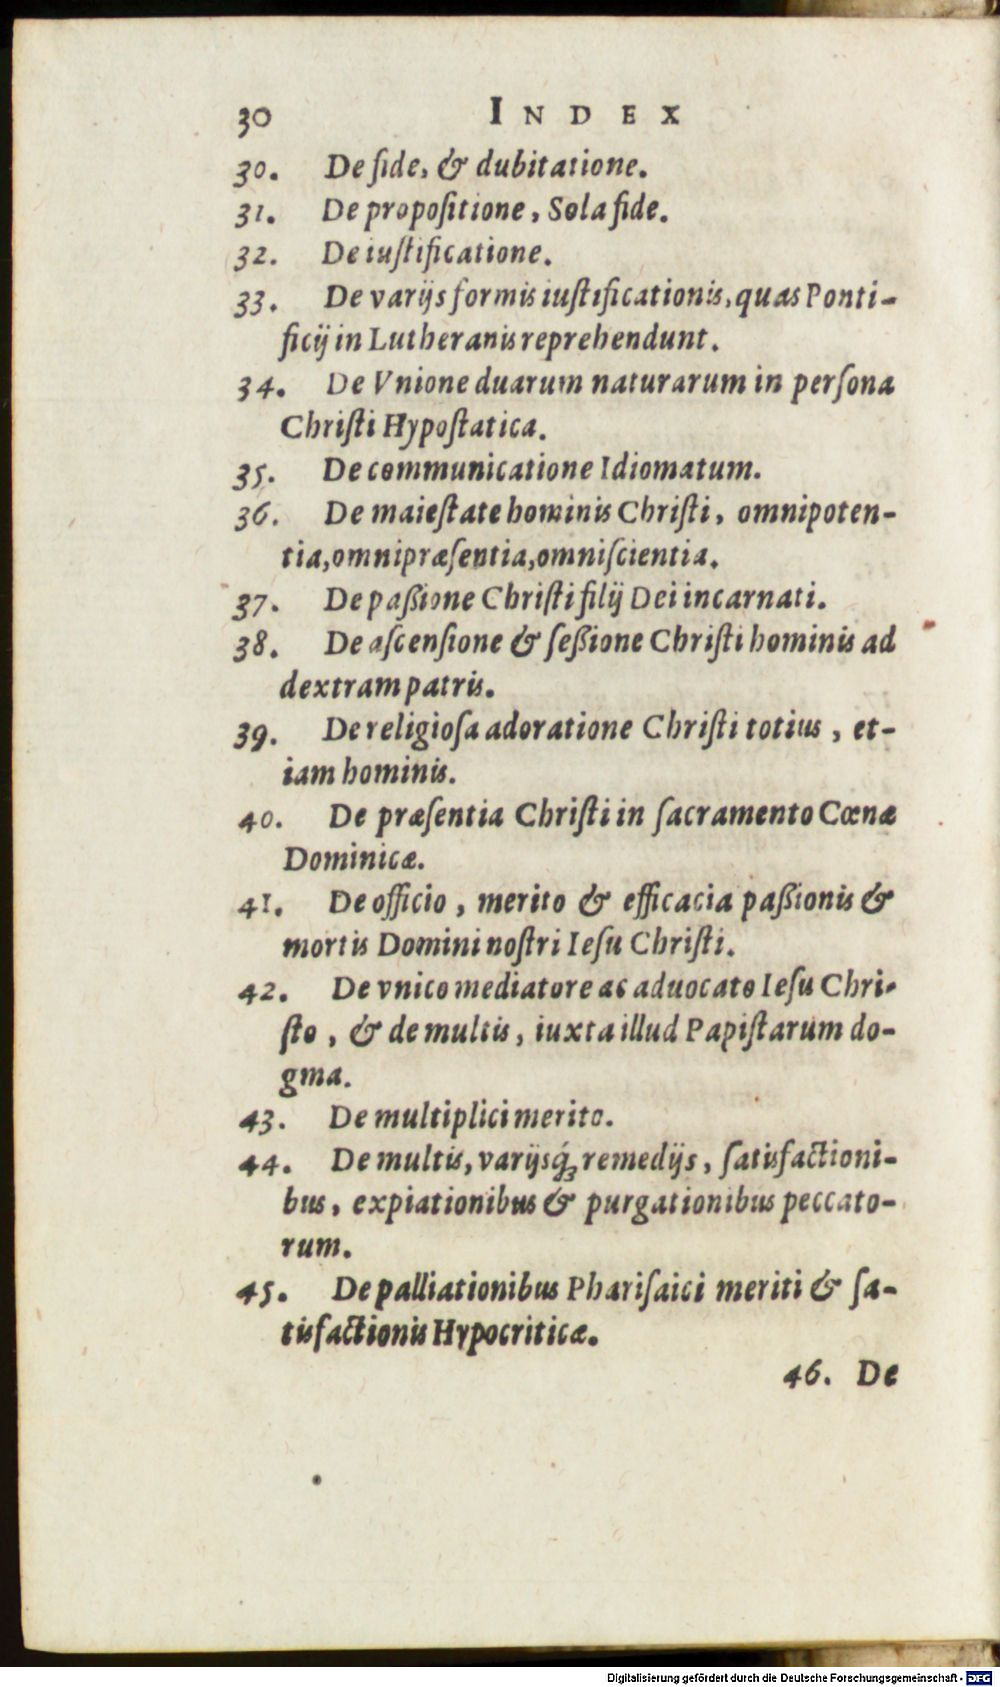 30 INDEX
30. De fide, & dubitatione.
31. De propoſitione, Sola fide.
32. De iuſtificatione.
33. De varijs formis iuſtificationis, quas Ponti-
ficij in Lutheranis reprehendunt.
34. De Vnione duarum naturarum in perſona
Chriſti Hypoſtatica.
35. De communicatione Idiomatum.
36. De maieſtate hominis Chriſti, omnipoten-
tia, omnipræſentia, omniſcientia.
37. De paßione Chriſti filij Dei incarnati.
38. De aſcenſione & ſeßione Chriſti hominis ad
dextram patris.
39. De religioſa adoratione Chriſti totius, et-
iam hominis.
40. De præſentia Chriſti in ſacramento Cœnæ
Dominicæ.
41. De officio, merito & efficacia paßionis &
mortis Domini noſtri Ieſu Chriſti.
42. De vnico mediatore ac aduocato Ieſu Chri-
ſto, & de multis, iuxta illud Papiſtarum do-
gma.
43. De multiplici merito.
44. De multis, varijsq́ꝫ remedijs, ſatisfactioni-
bus, expiationibus & purgationibus peccato-
rum.
45. De palliationibus Phariſaici meriti & ſa-
tisfactionis Hypocriticæ.
46. De
Digitalisierung gefördert durch die Deutsche Forschungsgemeinschaft - DFG